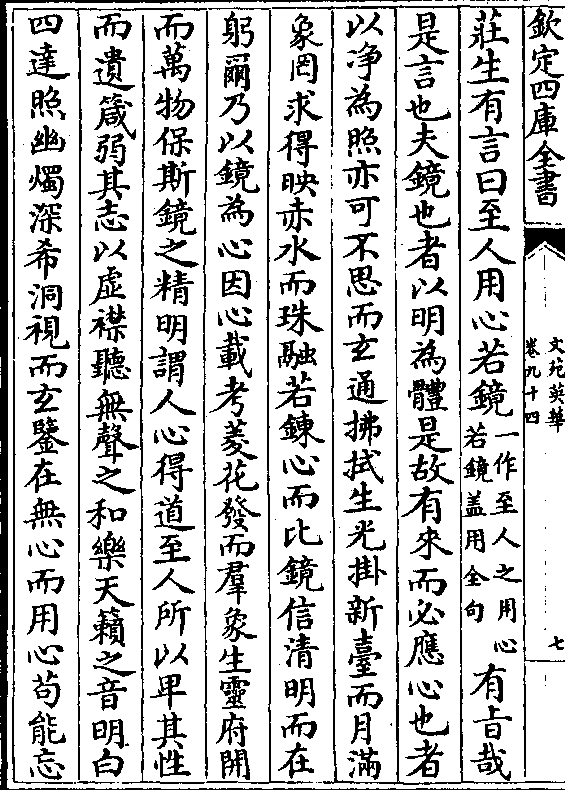 欽定四庫全書
文苑英華
卷九十四
七
莊生有言曰至人用心若鏡一作至人之用心若鏡盖用全句有旨哉
是言也夫鏡也者以明為體是故有來而必應心也者
以净為照亦可不思而玄通拂拭生光掛新臺而月滿
象罔求得映赤水而珠融若鍊心而比鏡信清明而在
躬爾乃以鏡為心因心載考菱花發而羣象生靈府開
而萬物保斯鏡之精明謂人心得道至人所以甲其性
而遺箴弱其志以虛襟聽無聲之和樂天籟之音明白
四達照幽燭深希洞視而玄鑒在無心而用心苟能忘